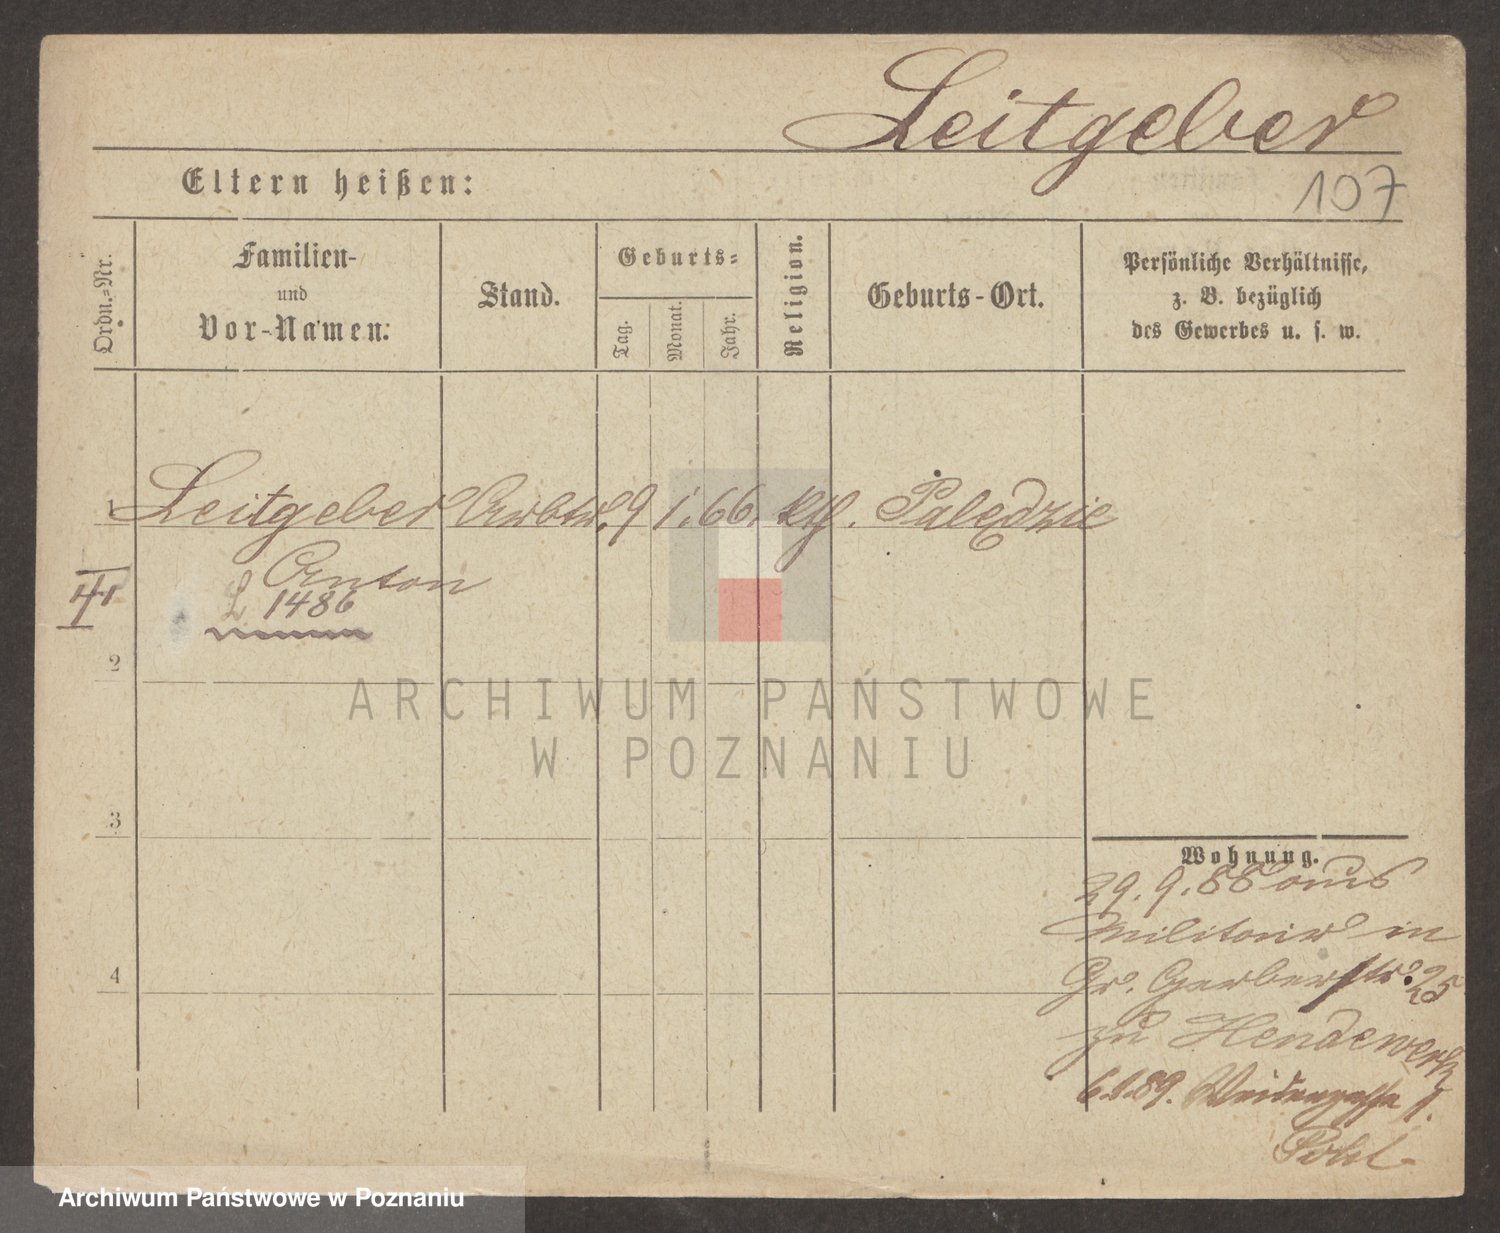 Leitgeber
Eltern heißen:
107
Ordn.-Nr.
Familien-
und
Vor-Namen:
Stand.
Geburts-
Tag.
Monat.
Jahr.
Religion.
Geburts-Ort.
Persönliche Verhältnisse,
z. B. bezüglich
des Gewerbes u. s. w.
1 Leitgeber Arbtr. 9 1. 66. kth. Palędzie
Anton
1486
2
ARCHIWUM PAŃSTWOWE
W POZNANIU
3
Wohnung.
29. 9. 88 aus
Militair in
4
Gr. Gerberstr. 25
zu Hendewerk
6.1.89. Weidengasse 1.
Pohl
Archiwum Państwowe w Poznaniu